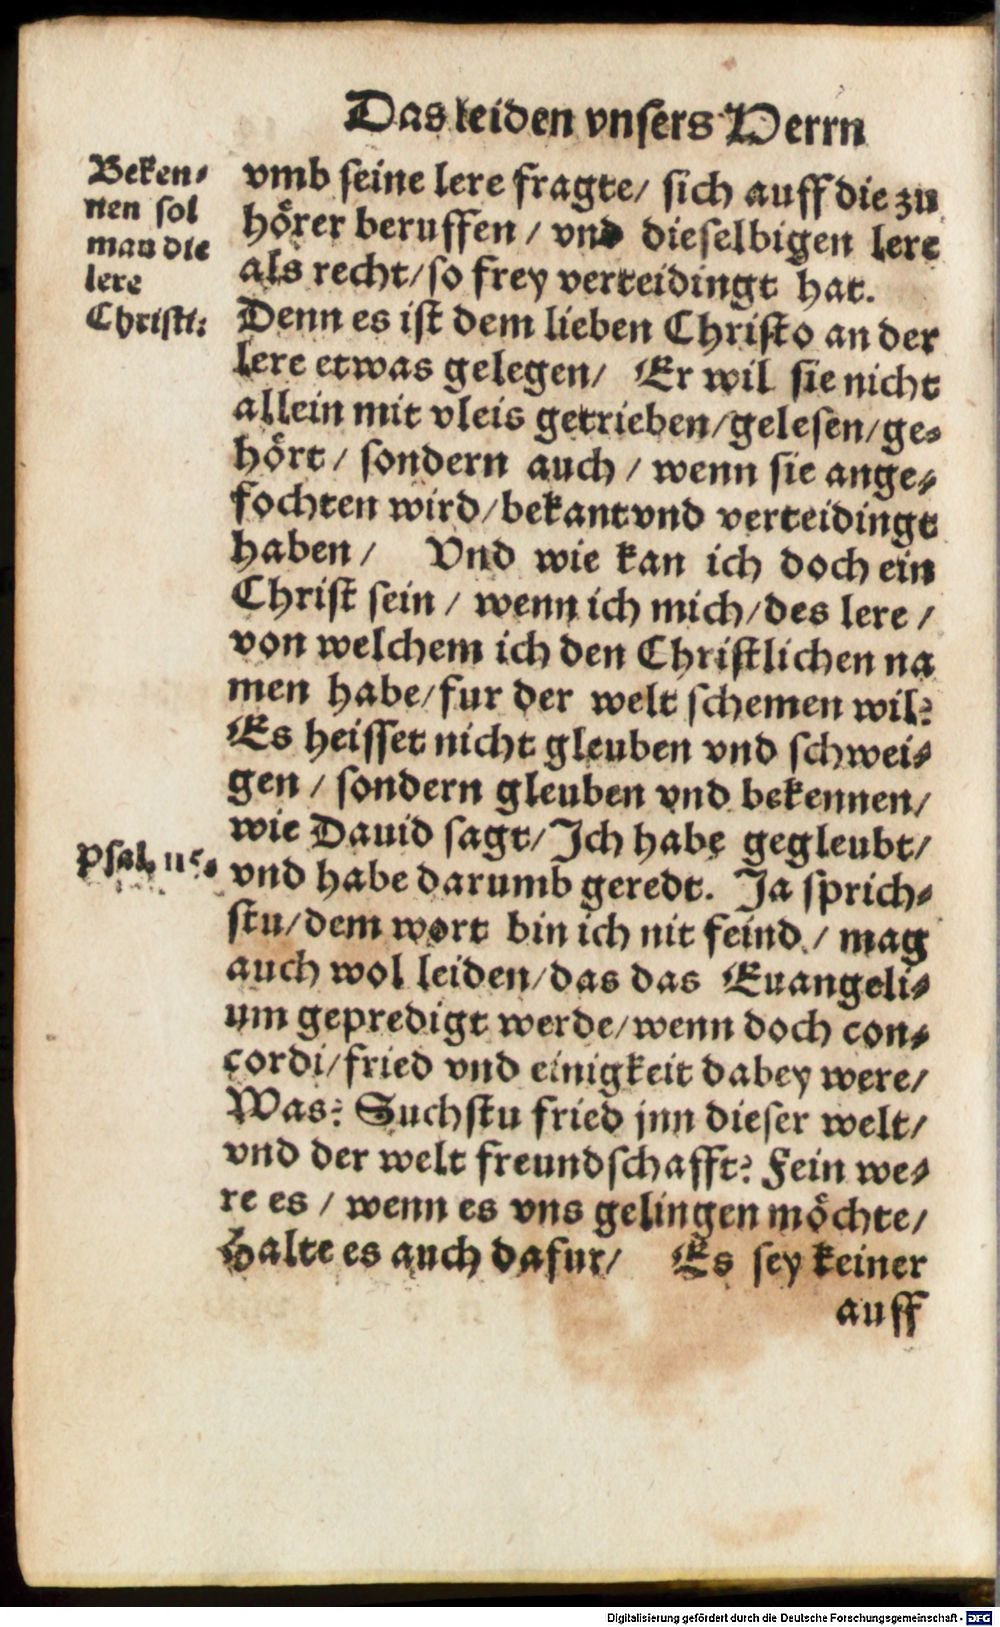 Das leiden vnsers Herrn
Beken⸗
nen sol
man die
lere
Christi:
vmb seine lere fragte/ sich auff die zu
hörer beruffen / vnd dieselbigen lere
als recht/so frey verteidingt hat.
Denn es ist dem lieben Christo an der
lere etwas gelegen/ Er wil sie nicht
allein mit vleis getrieben/gelesen/ge⸗
hört / sondern auch / wenn sie ange⸗
fochten wird/bekant vnd verteidingt
haben / Vnd wie kan ich doch ein
Christ sein / wenn ich mich/des lere /
von welchem ich den Christlichen na
men habe/fur der welt schemen wil?
Es heisset nicht gleuben vnd schwei⸗
gen / sondern gleuben vnd bekennen/
wie Dauid sagt/Ich habe gegleubt/
Psal. 115.
vnd habe darumb geredt. Ja sprich⸗
stu/dem wort bin ich nit feind / mag
auch wol leiden/das das Euangeli⸗
um gepredigt werde/wenn doch con⸗
cordi/fried vnd einigkeit dabey were/
Was? Suchstu fried jnn dieser welt/
vnd der welt freundschafft? Fein we⸗
re es / wenn es vns gelingen möchte/
Halte es auch dafur/ Es sey keiner
auff
Digitalisierung gefördert durch die Deutsche Forschungsgemeinschaft - DFG